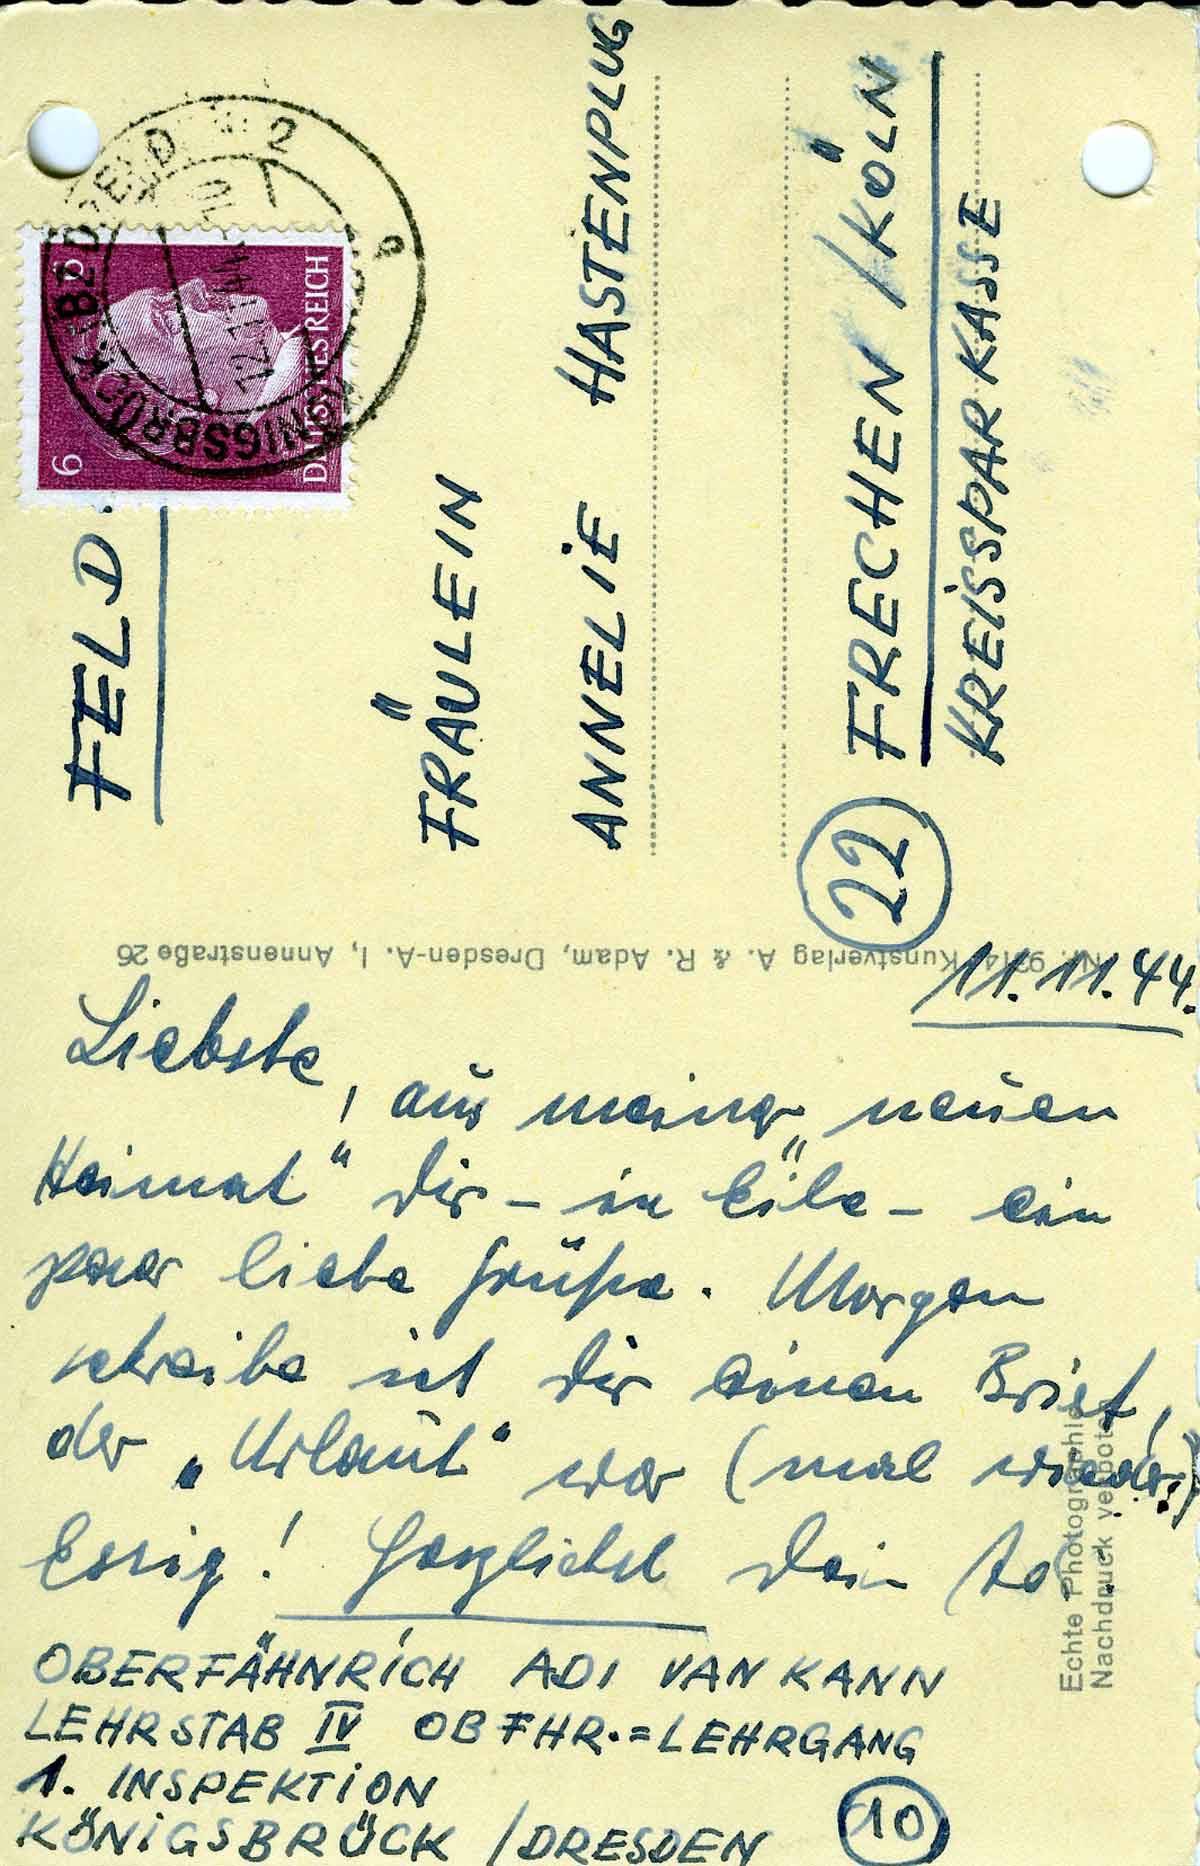 FELD.
6 6
DEUTSCHES REICH
KÖNIGSBRÜCK (BZ DRESDEN) 2
a
12.11.44
FRÄULEIN
ANNELIE HASTENPLUG
22 FRECHEN / KÖLN
KREISSPARKASSE
Nr. Kunstverlag A. & R. Adam, Dresden-A. 1, Annenstraße 26
11.11.44.
Liebste,
aus meiner „neuen
Heimat" Dir – in Eile – ein
paar liebe Grüße. Morgen
schreibe ich Dir einen Brief,
der „Urlaub" war (mal wieder!)
Essig! Herzlichst Dein
Echte Photographie
Nachdruck verboten
OBERFÄHNRICH ADI VAN KANN
LEHRSTAB IV OBFHR.=LEHRGANG
1. INSPEKTION
KÖNIGSBRÜCK / DRESDEN 10